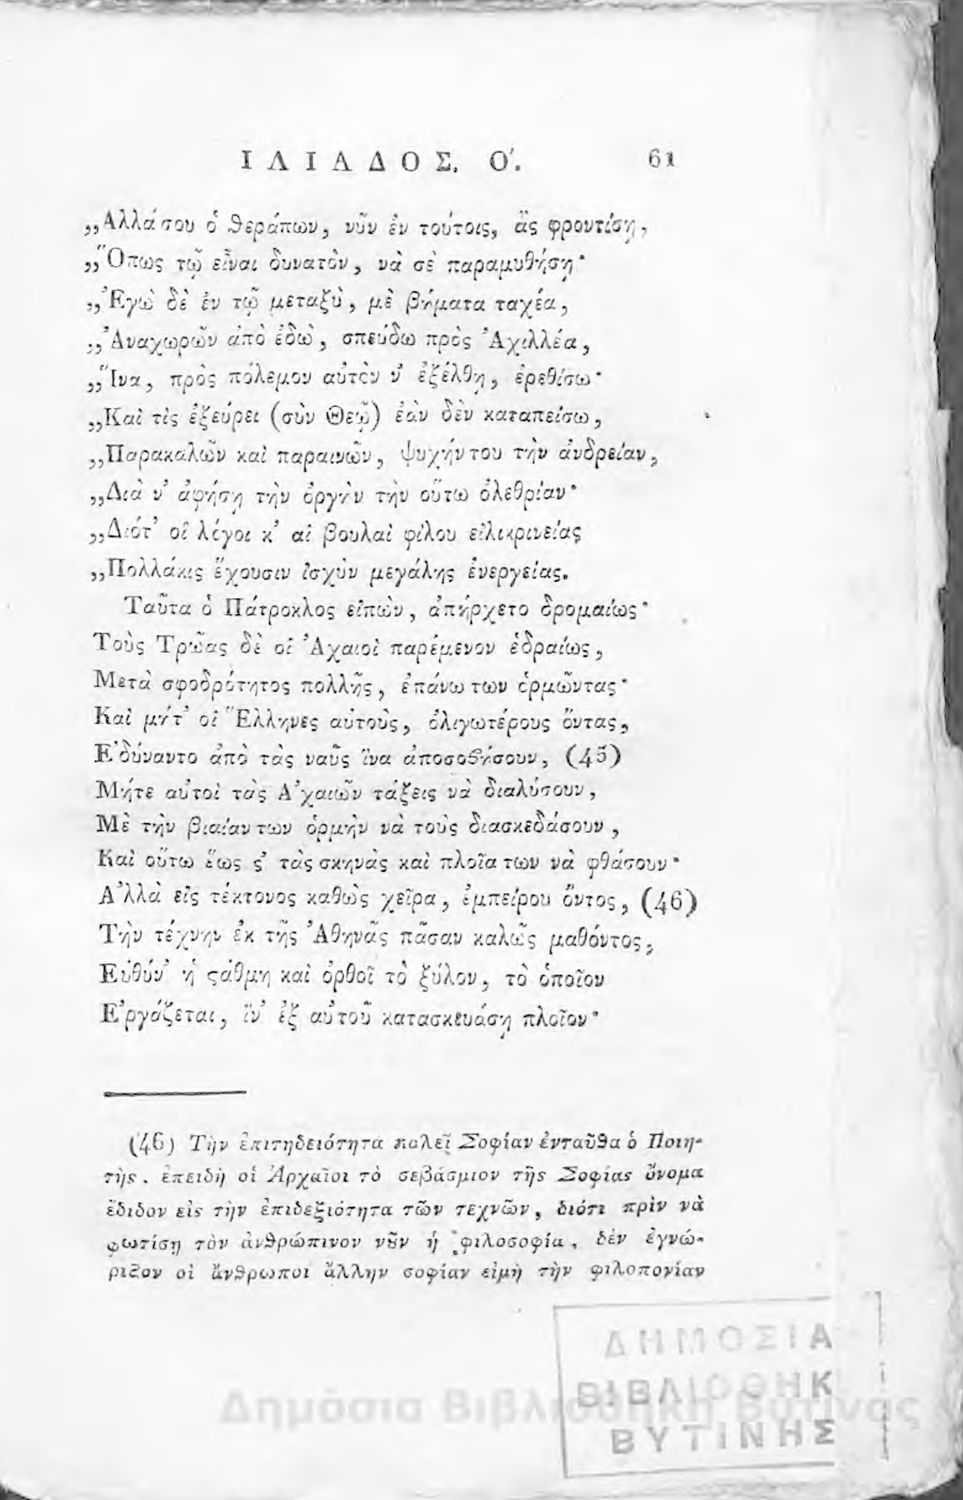 ΙΛΙΑΔΟΣ. Ο'. 61
„Ἀλλά σου ὁ θεράπων, νῦν ἐν τούτοις, ἂς φροντίσῃ,
„Ὅπως τῷ εἶναι δυνατὸν, νὰ σὲ παραμυθήσῃ·
„Ἐγὼ δὲ ἐν τῷ μεταξὺ, μὲ βήματα ταχέα,
„Ἀναχωρῶν ἀπὸ ἐδὼ, σπεύδω πρὸς Ἀχιλλέα,
„Ἵνα, πρὸς πόλεμον αὐτὸν ν' ἐξέλθῃ, ἐρεθίσω·
„Καὶ τὶς ἐξεύρει (σὺν Θεῷ) ἐὰν δὲν καταπείσω,
„Παρακαλῶν καὶ παραινῶν, ψυχήν του τὴν ἀνδρείαν,
„Διὰ ν' ἀφήσῃ τὴν ὀργὴν τὴν οὕτω ὀλεθρίαν·
„Διότ' οἱ λόγοι κ' αἱ βουλαὶ φίλου εἰλικρινείας
„Πολλάκις ἔχουσιν ἰσχὺν μεγάλης ἐνεργείας.
Ταῦτα ὁ Πάτροκλος εἰπὼν, ἀπήρχετο δρομαίως·
Τοὺς Τρῶας δὲ οἱ Ἀχαιοὶ παρέμενον ἑδραίως,
Μετὰ σφοδρότητος πολλῆς, ἐπάνω των ὁρμῶντας·
Καὶ μήτ' οἱ Ἕλληνες αὐτοὺς, ὀλιγωτέρους ὄντας,
Ἐδύναντο ἀπὸ τὰς ναῦς ἵνα ἀποσοβήσουν, (45)
Μήτε αὐτοὶ τὰς Ἀχαιῶν τάξεις νὰ διαλύσουν,
Μὲ τὴν βιαίαν των ὁρμὴν νὰ τοὺς διασκεδάσουν,
Καὶ οὕτω ἕως ϛ' τὰς σκηνὰς καὶ πλοῖα των νὰ φθάσουν·
Ἀλλὰ εἰς τέκτονος καθὼς χεῖρα, ἐμπείρου ὄντος, (46)
Τὴν τέχνην ἐκ τῆς Ἀθηνᾶς πᾶσαν καλῶς μαθόντος,
Εὐθύν' ἡ ϛάθμη καὶ ὀρθοῖ τὸ ξύλον, τὸ ὁποῖον
Ἐργάζεται, ἵν' ἐξ αὐτοῦ κατασκευάσῃ πλοῖον·
(46) Τὴν ἐπιτηδειότητα καλεῖ Σοφίαν ἐνταῦθα ὁ Ποιη-
τὴς. ἐπειδὴ οἱ Ἀρχαῖοι τὸ σεβάσμιον τῆς Σοφίας ὄνομα
ἔδιδον εἰς τὴν ἐπιδεξιότητα τῶν τεχνῶν, διότι πρὶν νὰ
φωτίσῃ τὸν ἀνθρώπινον νοῦν ἡ φιλοσοφία, δὲν ἐγνώ-
ριζον οἱ ἄνθρωποι ἄλλην σοφίαν εἰμὴ τὴν φιλοπονίαν
ΔΗΜΟΣΙΑ
ΒΙΒΛΙΟΘΗΚ
ΒΥΤΙΝΗΣ
Δημόσια Βιβλιοθήκη Βυτίνας